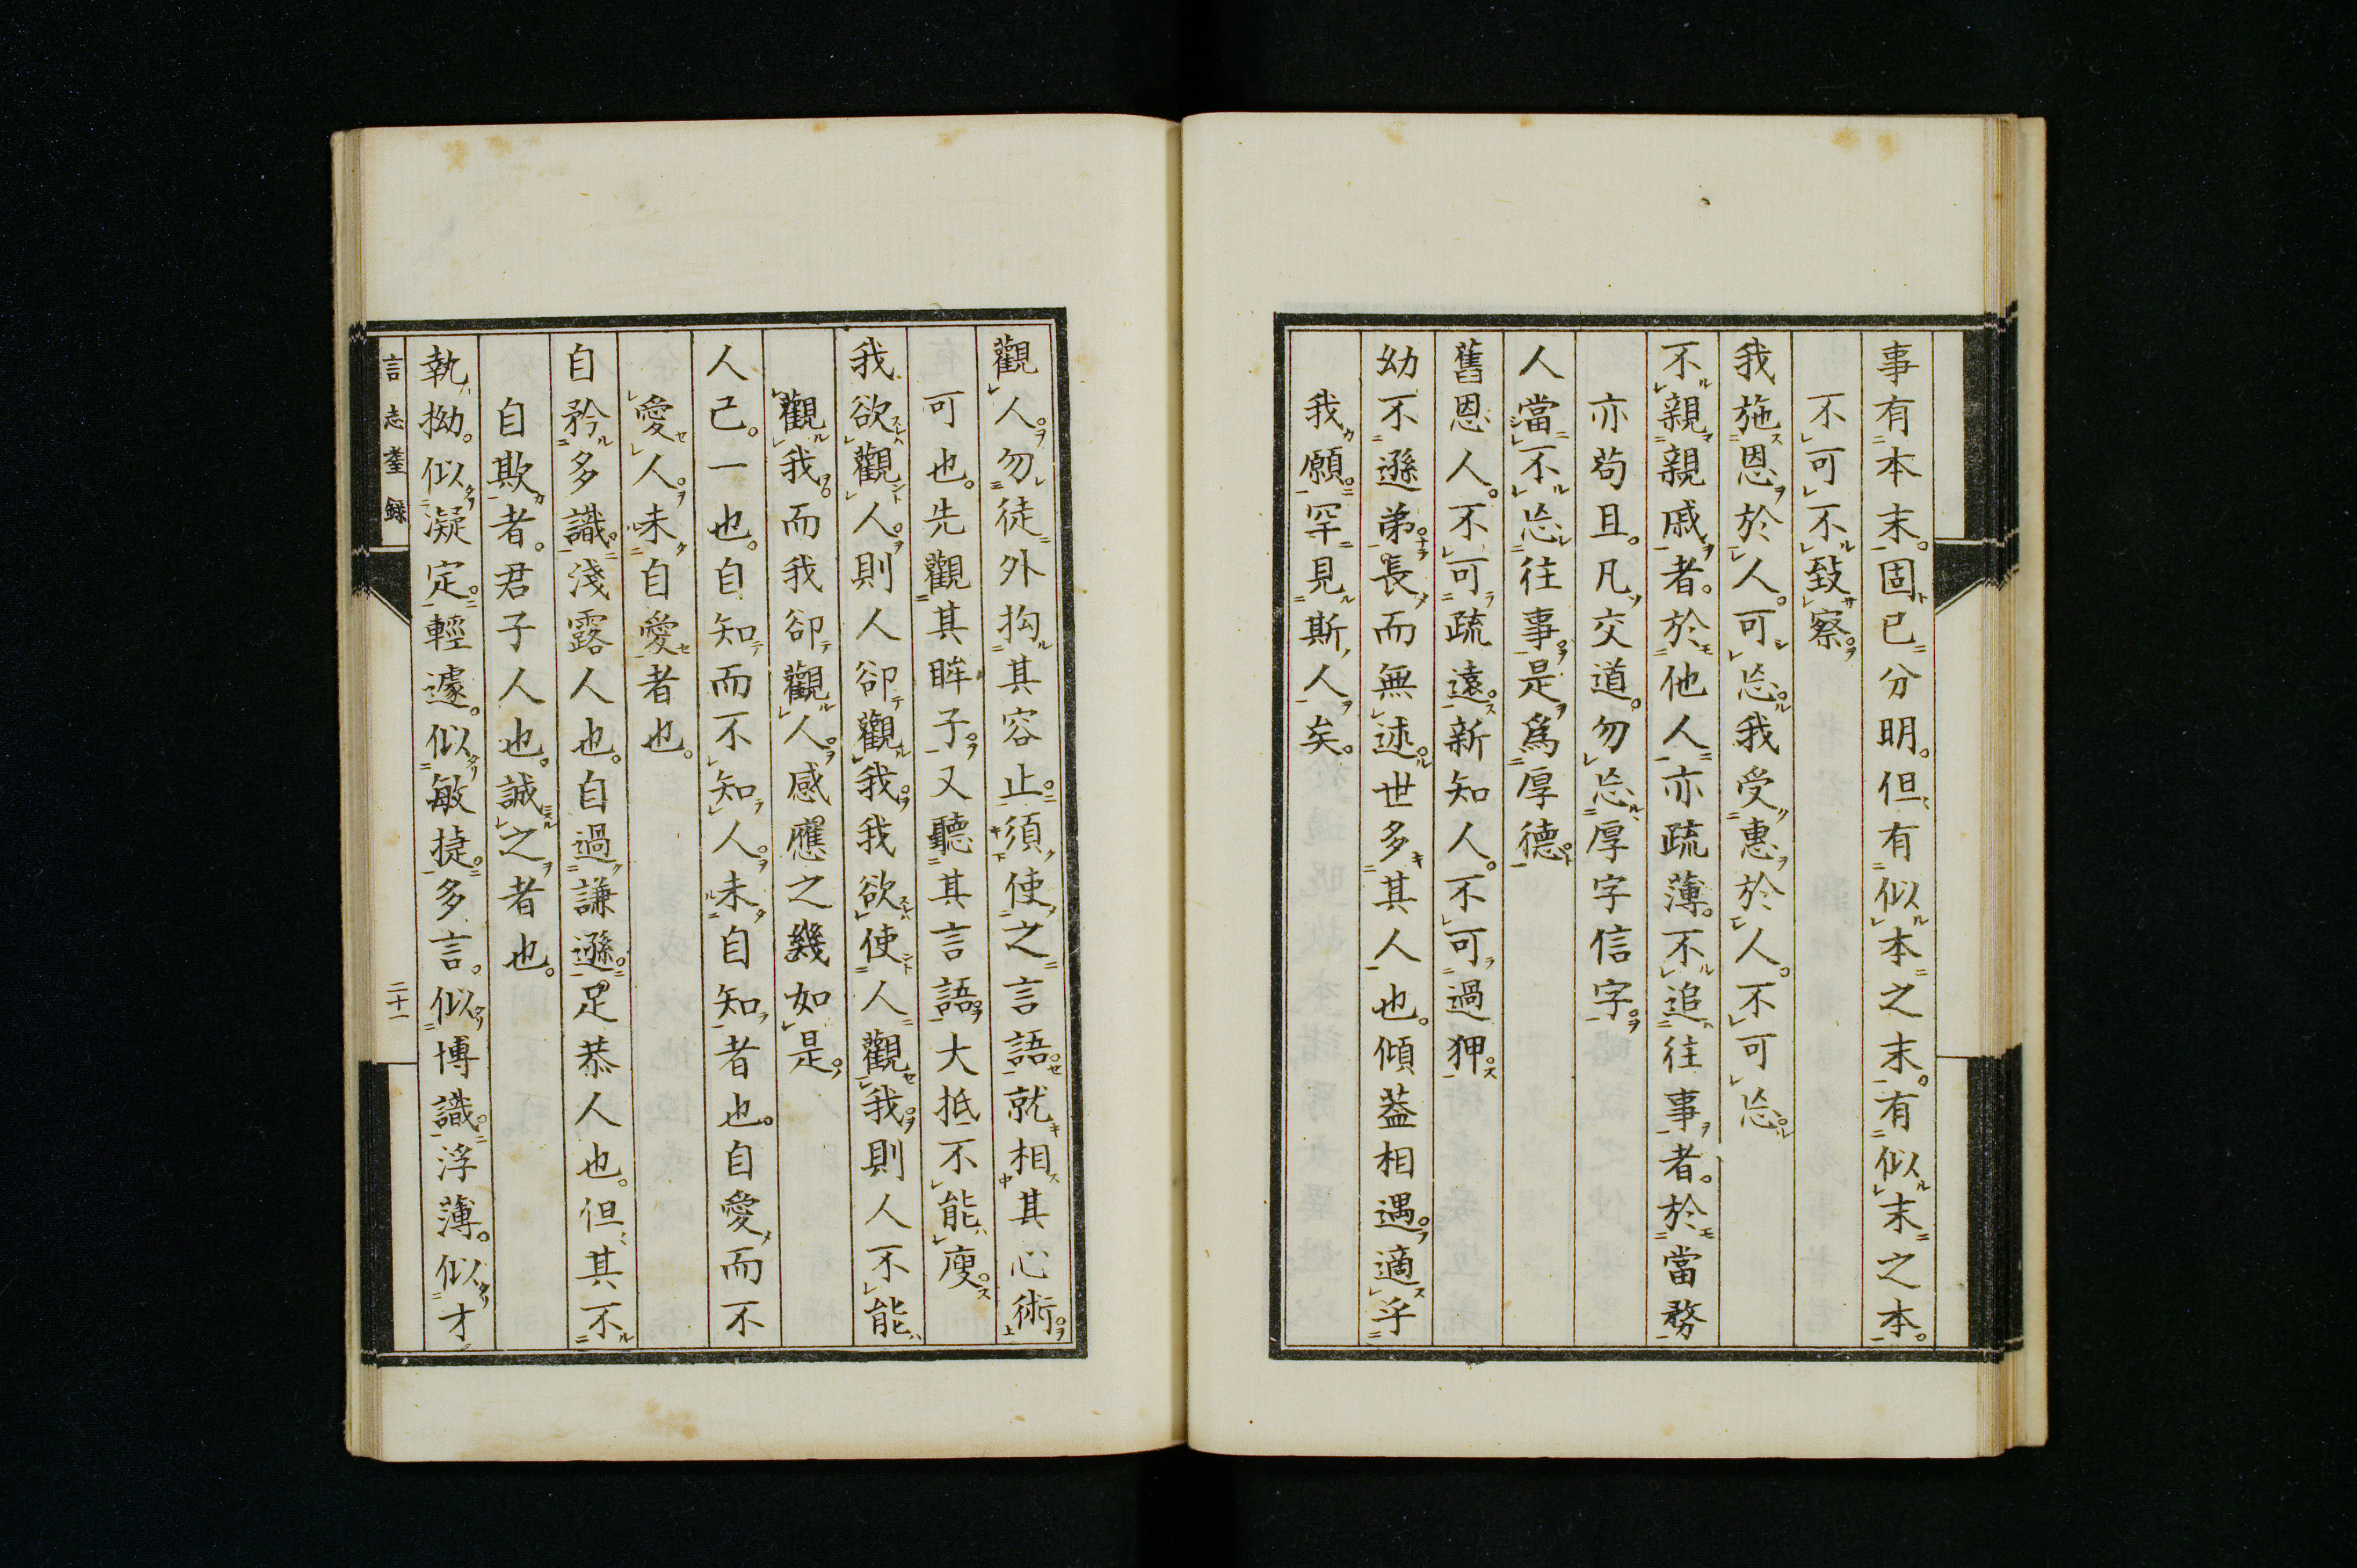 事有本末。固已分明。但有似本之末。有似末之本。
不可不致察。
我施恩於人。可忘。我受惠於人。不可忘。
不親親戚者。於他人亦疏薄。不追往事者。於當務
亦苟且。凡交道。勿忘厚字信字。
人當不忘往事。是爲厚德。
舊恩人。不可疏遠。新知人。不可過狎。
幼不遜弟。長而無述。世多其人也。傾蓋相遇。適乎
我願。罕見斯人矣。
觀人。勿徒外拘其容止。須使之言語。就相其心術。
可也。先觀其眸子。又聽其言語。大抵不能廋。
我欲觀人。則人卻觀我。我欲使人觀我。則人不能
觀我。而我卻觀人。感應之幾如是。
人己。一也。自知而不知人。未自知者也。自愛而不
愛人。未自愛者也。
自矜多識。淺露人也。自過謙遜。足恭人也。但其不
自欺者。君子人也。誠之者也。
執拗。似凝定。輕遽。似敏捷。多言。似博識。浮薄。似才
言志耋録
二十一